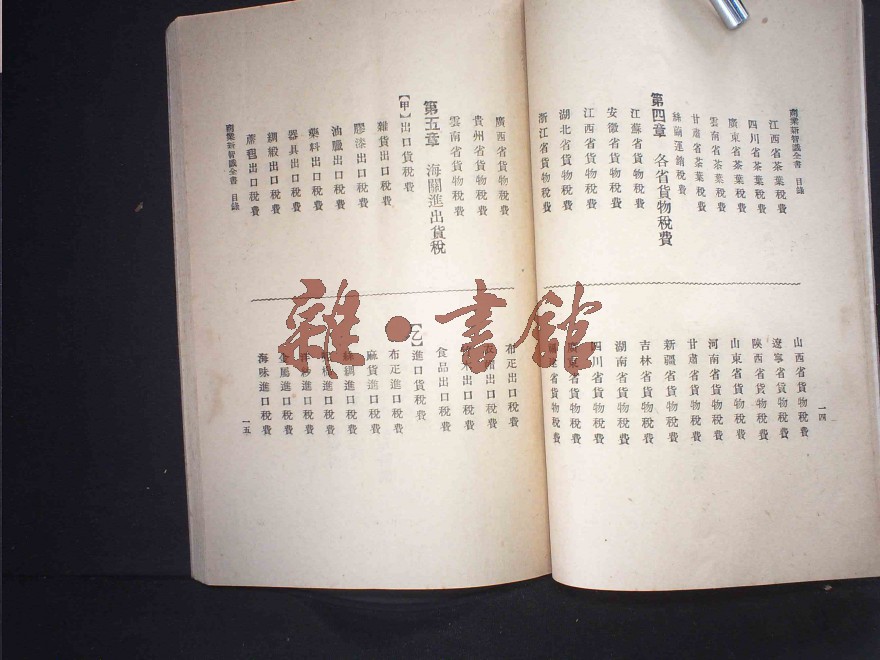 商業新智識全書 目錄
江西省茶葉稅費
四川省茶葉稅費
廣東省茶葉稅費
雲南省茶葉稅費
甘肅省茶葉稅費
絲繭運銷稅費
第四章 各省貨物稅費
江蘇省貨物稅費
安徽省貨物稅費
江西省貨物稅費
湖北省貨物稅費
浙江省貨物稅費
山西省貨物稅費
遼寧省貨物稅費
陝西省貨物稅費
山東省貨物稅費
河南省貨物稅費
甘肅省貨物稅費
新疆省貨物稅費
吉林省貨物稅費
湖南省貨物稅費
四川省貨物稅費
廣東省貨物稅費
省貨物稅費
一四
廣西省貨物稅費
貴州省貨物稅費
雲南省貨物稅費
第五章 海關進出貨稅
【甲】出口貨稅費
雜貨出口稅費
膠漆出口稅費
油臘出口稅費
藥料出口稅費
器具出口稅費
綢緞出口稅費
蓆氈出口稅費
布疋出口稅費
出口稅費
出口稅費
食品出口稅費
【乙】進口貨稅費
布疋進口稅費
麻貨進口稅費
絲綢進口稅費
進口稅費
進口稅費
金屬進口稅費
海味進口稅費
商業新智識全書 目錄
一五
雜·書館